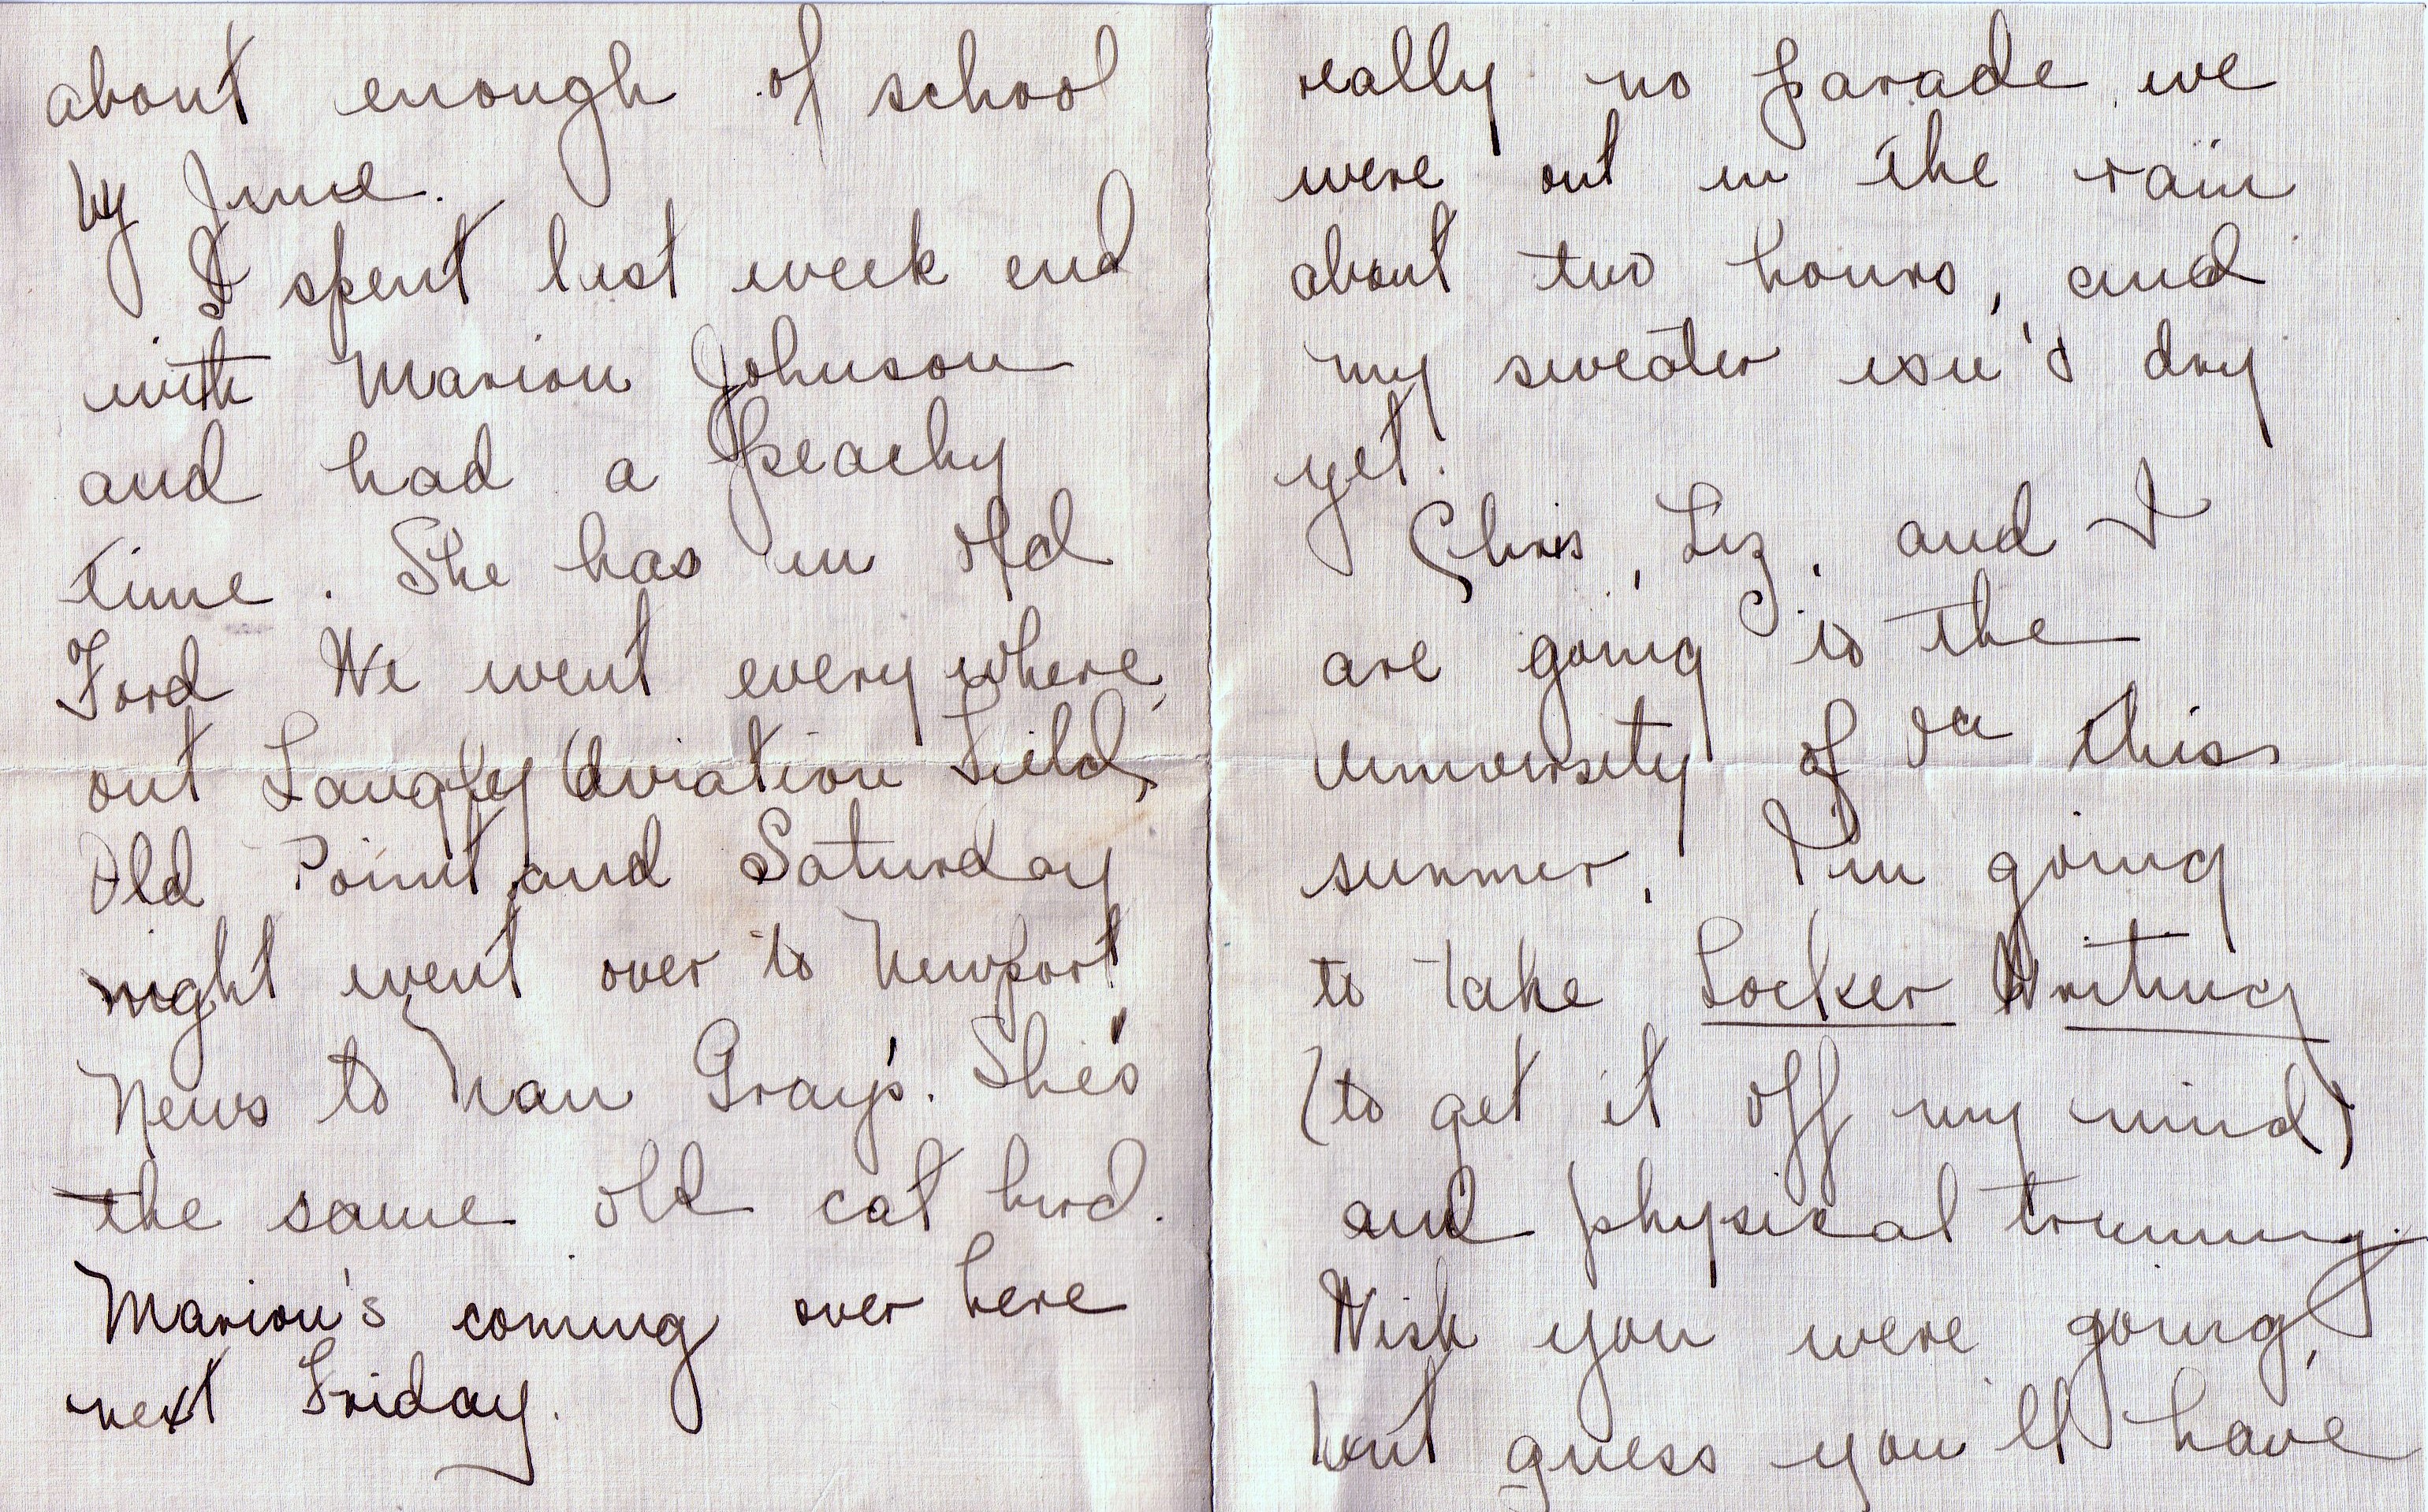 about enough of school
by June.
I spent last week end
with Marion Johnson
and had a peachy
time. She has an old
Ford We went everywhere,
out Langley Aviation Field,
Old Point, and Saturday
night went over to Newport
News to Nan Gray's. She's
the same old cat bird.
Marion's coming over here
next Friday.
really no parade we
were out in the rain
about two hours, and
my sweater isn't dry
yet.
Chris, Liz, and I
are going to the
University of Va this
summer. I'm going
to take Locker Writing
(to get it off my mind)
and physical training.
Wish you were going,
but guess you'll have